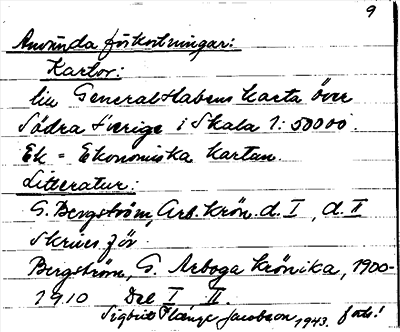 9
Använda förkortningar:
Kartor:
Generalstabens karta över
Södra Sverige i Skala 1:50000.
Ek = Ekonomiska Kartan.
Litteratur:
G. Bergström, Arb. krön. d. I, d. II
Skrives för
Bergström, G. Arboga Krönika, 1900-
1910 Del I II.
Sigbrit Plænge Jacobson 1943. forts!